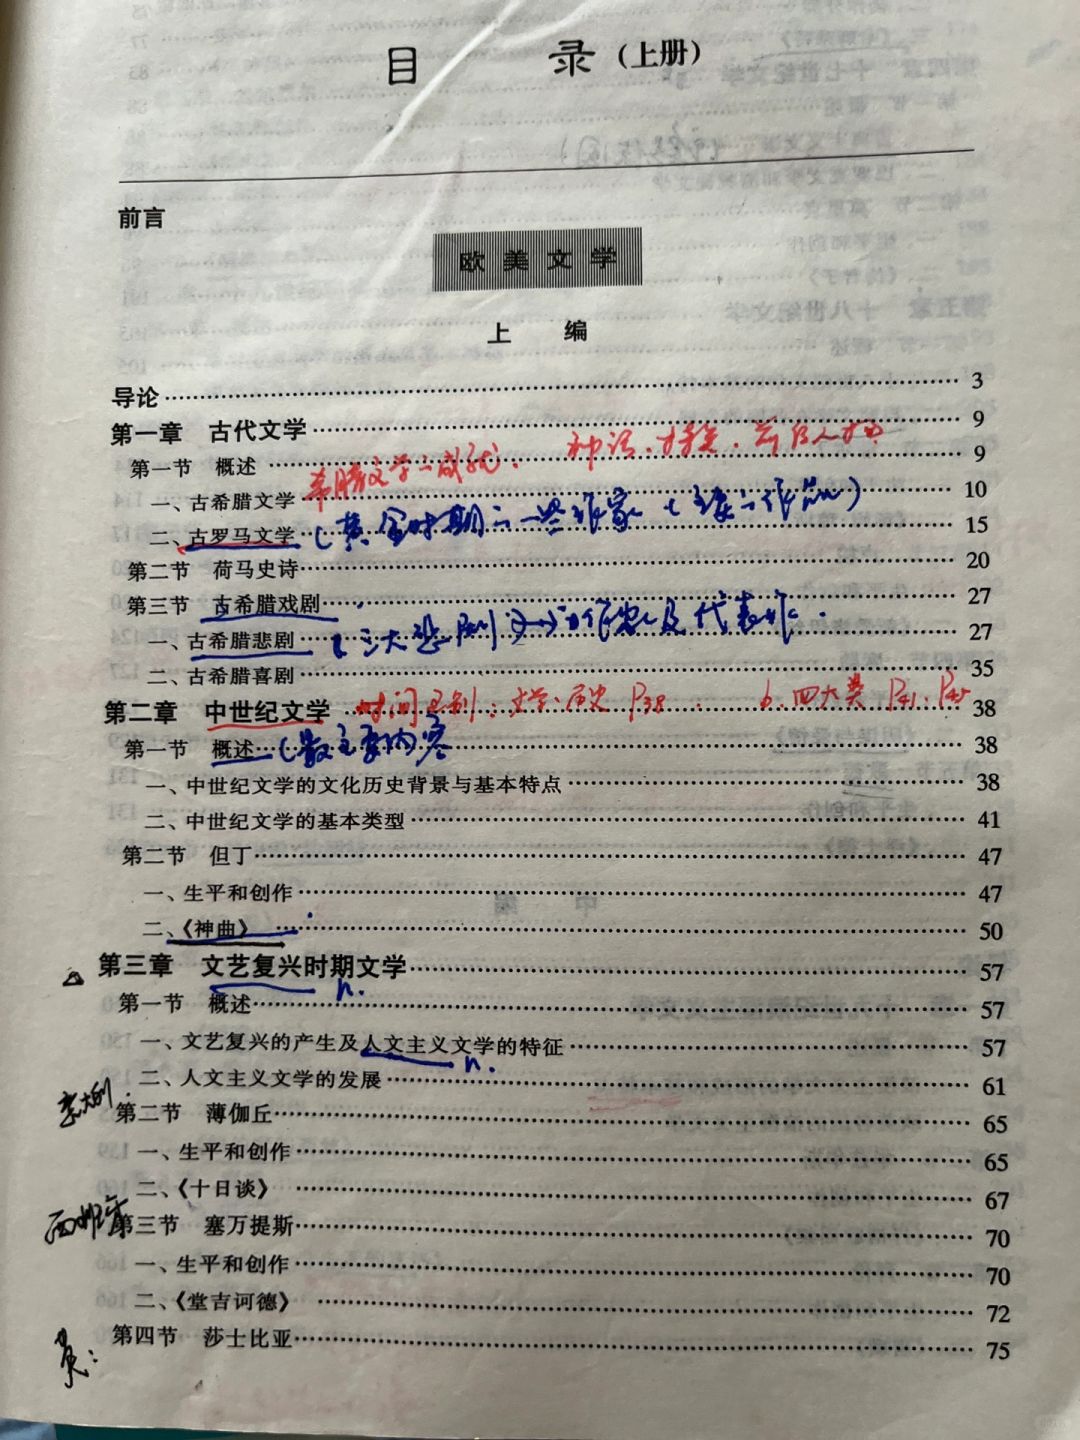 目 录（上册）
前言
欧美文学
上 编
导论 3
第一章 古代文学 9
第一节 概述 9
希腊文学
神话
一、古希腊文学 10
二、古罗马文学 15
（黄金时期 一些作家（主要 作品）
第二节 荷马史诗 20
第三节 古希腊戏剧 27
一、古希腊悲剧 27
三大悲剧 作家及代表作
二、古希腊喜剧 35
第二章 中世纪文学 38
时间 文学、历史 P38 b.四大类 P41、P45
第一节 概述 38
主要内容
一、中世纪文学的文化历史背景与基本特点 38
二、中世纪文学的基本类型 41
第二节 但丁 47
一、生平和创作 47
二、《神曲》 50
第三章 文艺复兴时期文学 57
n.
第一节 概述 57
一、文艺复兴的产生及人文主义文学的特征 57
n.
二、人文主义文学的发展 61
第二节 薄伽丘 65
一、生平和创作 65
二、《十日谈》 67
西班牙
第三节 塞万提斯 70
一、生平和创作 70
二、《堂吉诃德》 72
英：
第四节 莎士比亚 75